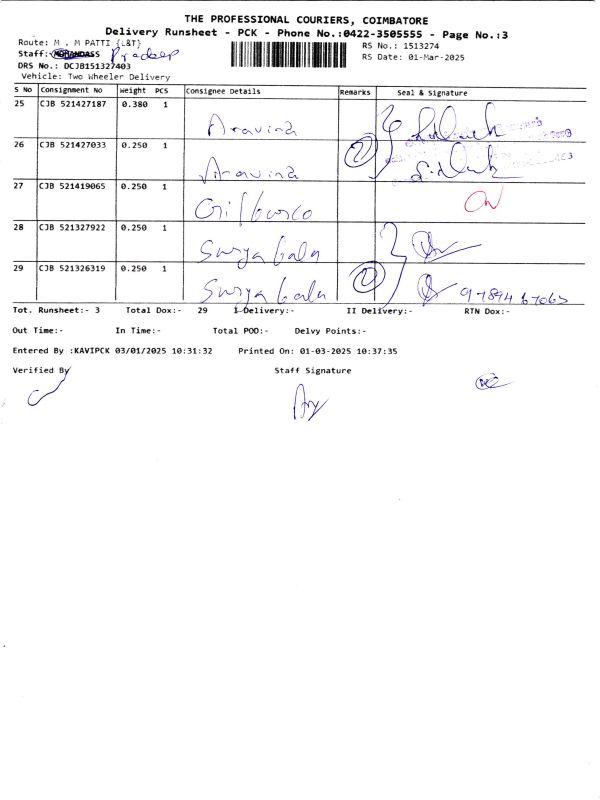 THE PROFESSIONAL COURIERS, COIMBATORE
Delivery Runsheet - PCK - Phone No.:0422-3505555 - Page No.:3
Route: M . M PATTI {L&T}
RS No.: 1513274
Staff: MOHANDASS Pradeep
RS Date: 01-Mar-2025
DRS No.: DCJB151327403
Vehicle: Two Wheeler Delivery
S No Consignment No Weight PCS Consignee Details Remarks Seal & Signature
25 CJB 521427187 0.380 1 Aravind
26 CJB 521427033 0.250 1 Aravind 2
27 CJB 521419065 0.250 1
28 CJB 521327922 0.250 1 Surya bala
29 CJB 521326319 0.250 1 Surya bala 2 97894 67065
Tot. Runsheet:- 3 Total Dox:- 29 I Delivery:- II Delivery:- RTN Dox:-
Out Time:- In Time:- Total POD:- Delvy Points:-
Entered By :KAVIPCK 03/01/2025 10:31:32 Printed On: 01-03-2025 10:37:35
Verified By Staff Signature